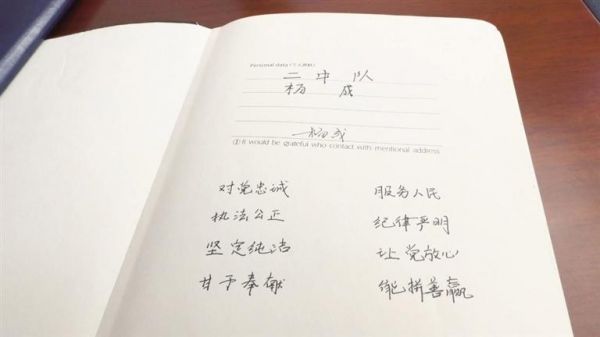 Personal data (个人资料)
二中队
杨成
杨成
①It would be grateful who contact with mentional address
对党忠诚 服务人民
执法公正 纪律严明
坚定纯洁 让党放心
甘于奉献 能拼善赢